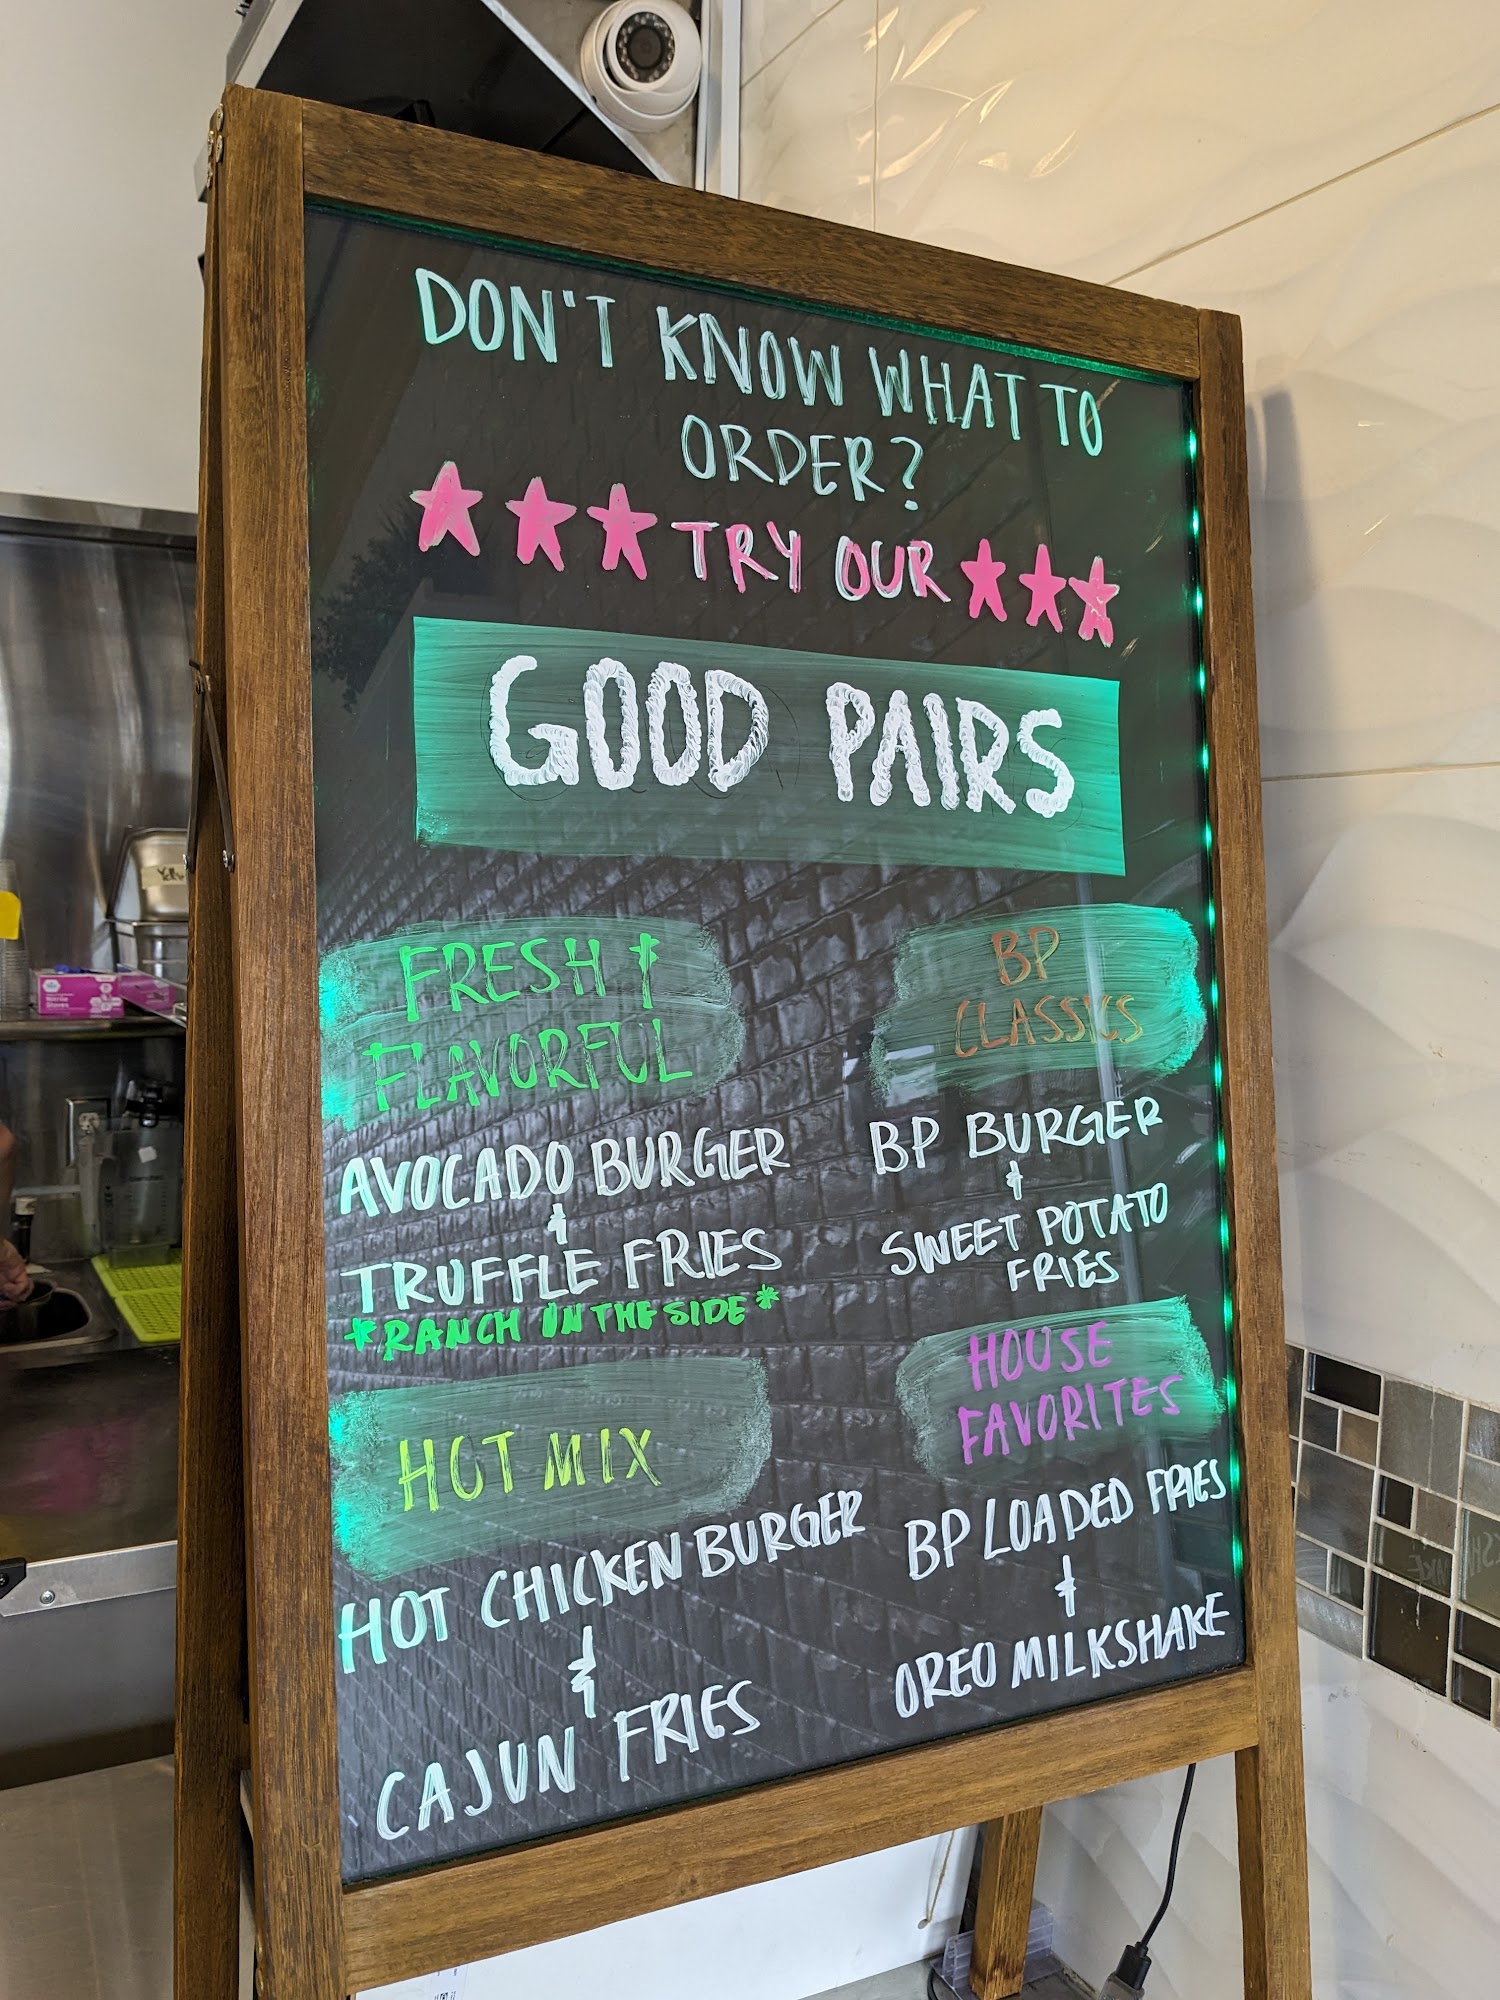 DON'T KNOW WHAT TO
ORDER?
TRY OUR
GOOD PAIRS
FRESH &
FLAVORFUL
AVOCADO BURGER
&
TRUFFLE FRIES
*RANCH ON THE SIDE*
HOT MIX
HOT CHICKEN BURGER
&
CAJUN FRIES
BP
CLASSICS
BP BURGER
&
SWEET POTATO
FRIES
HOUSE
FAVORITES
BP LOADED FRIES
&
OREO MILKSHAKE
Nitrile
Gloves